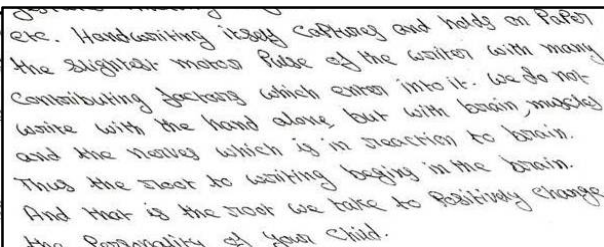 etc. Handwriting itself captures and holds on PaPer
the slightest motor Pulse of the writer with many
contributing factors which enter into it. We do not
write with the hand alone, but with brain, muscles
and the nerves which is in reaction to brain.
Thus the root to writing begins in the brain.
And that is the root we take to Positively change
the Personality of your child.